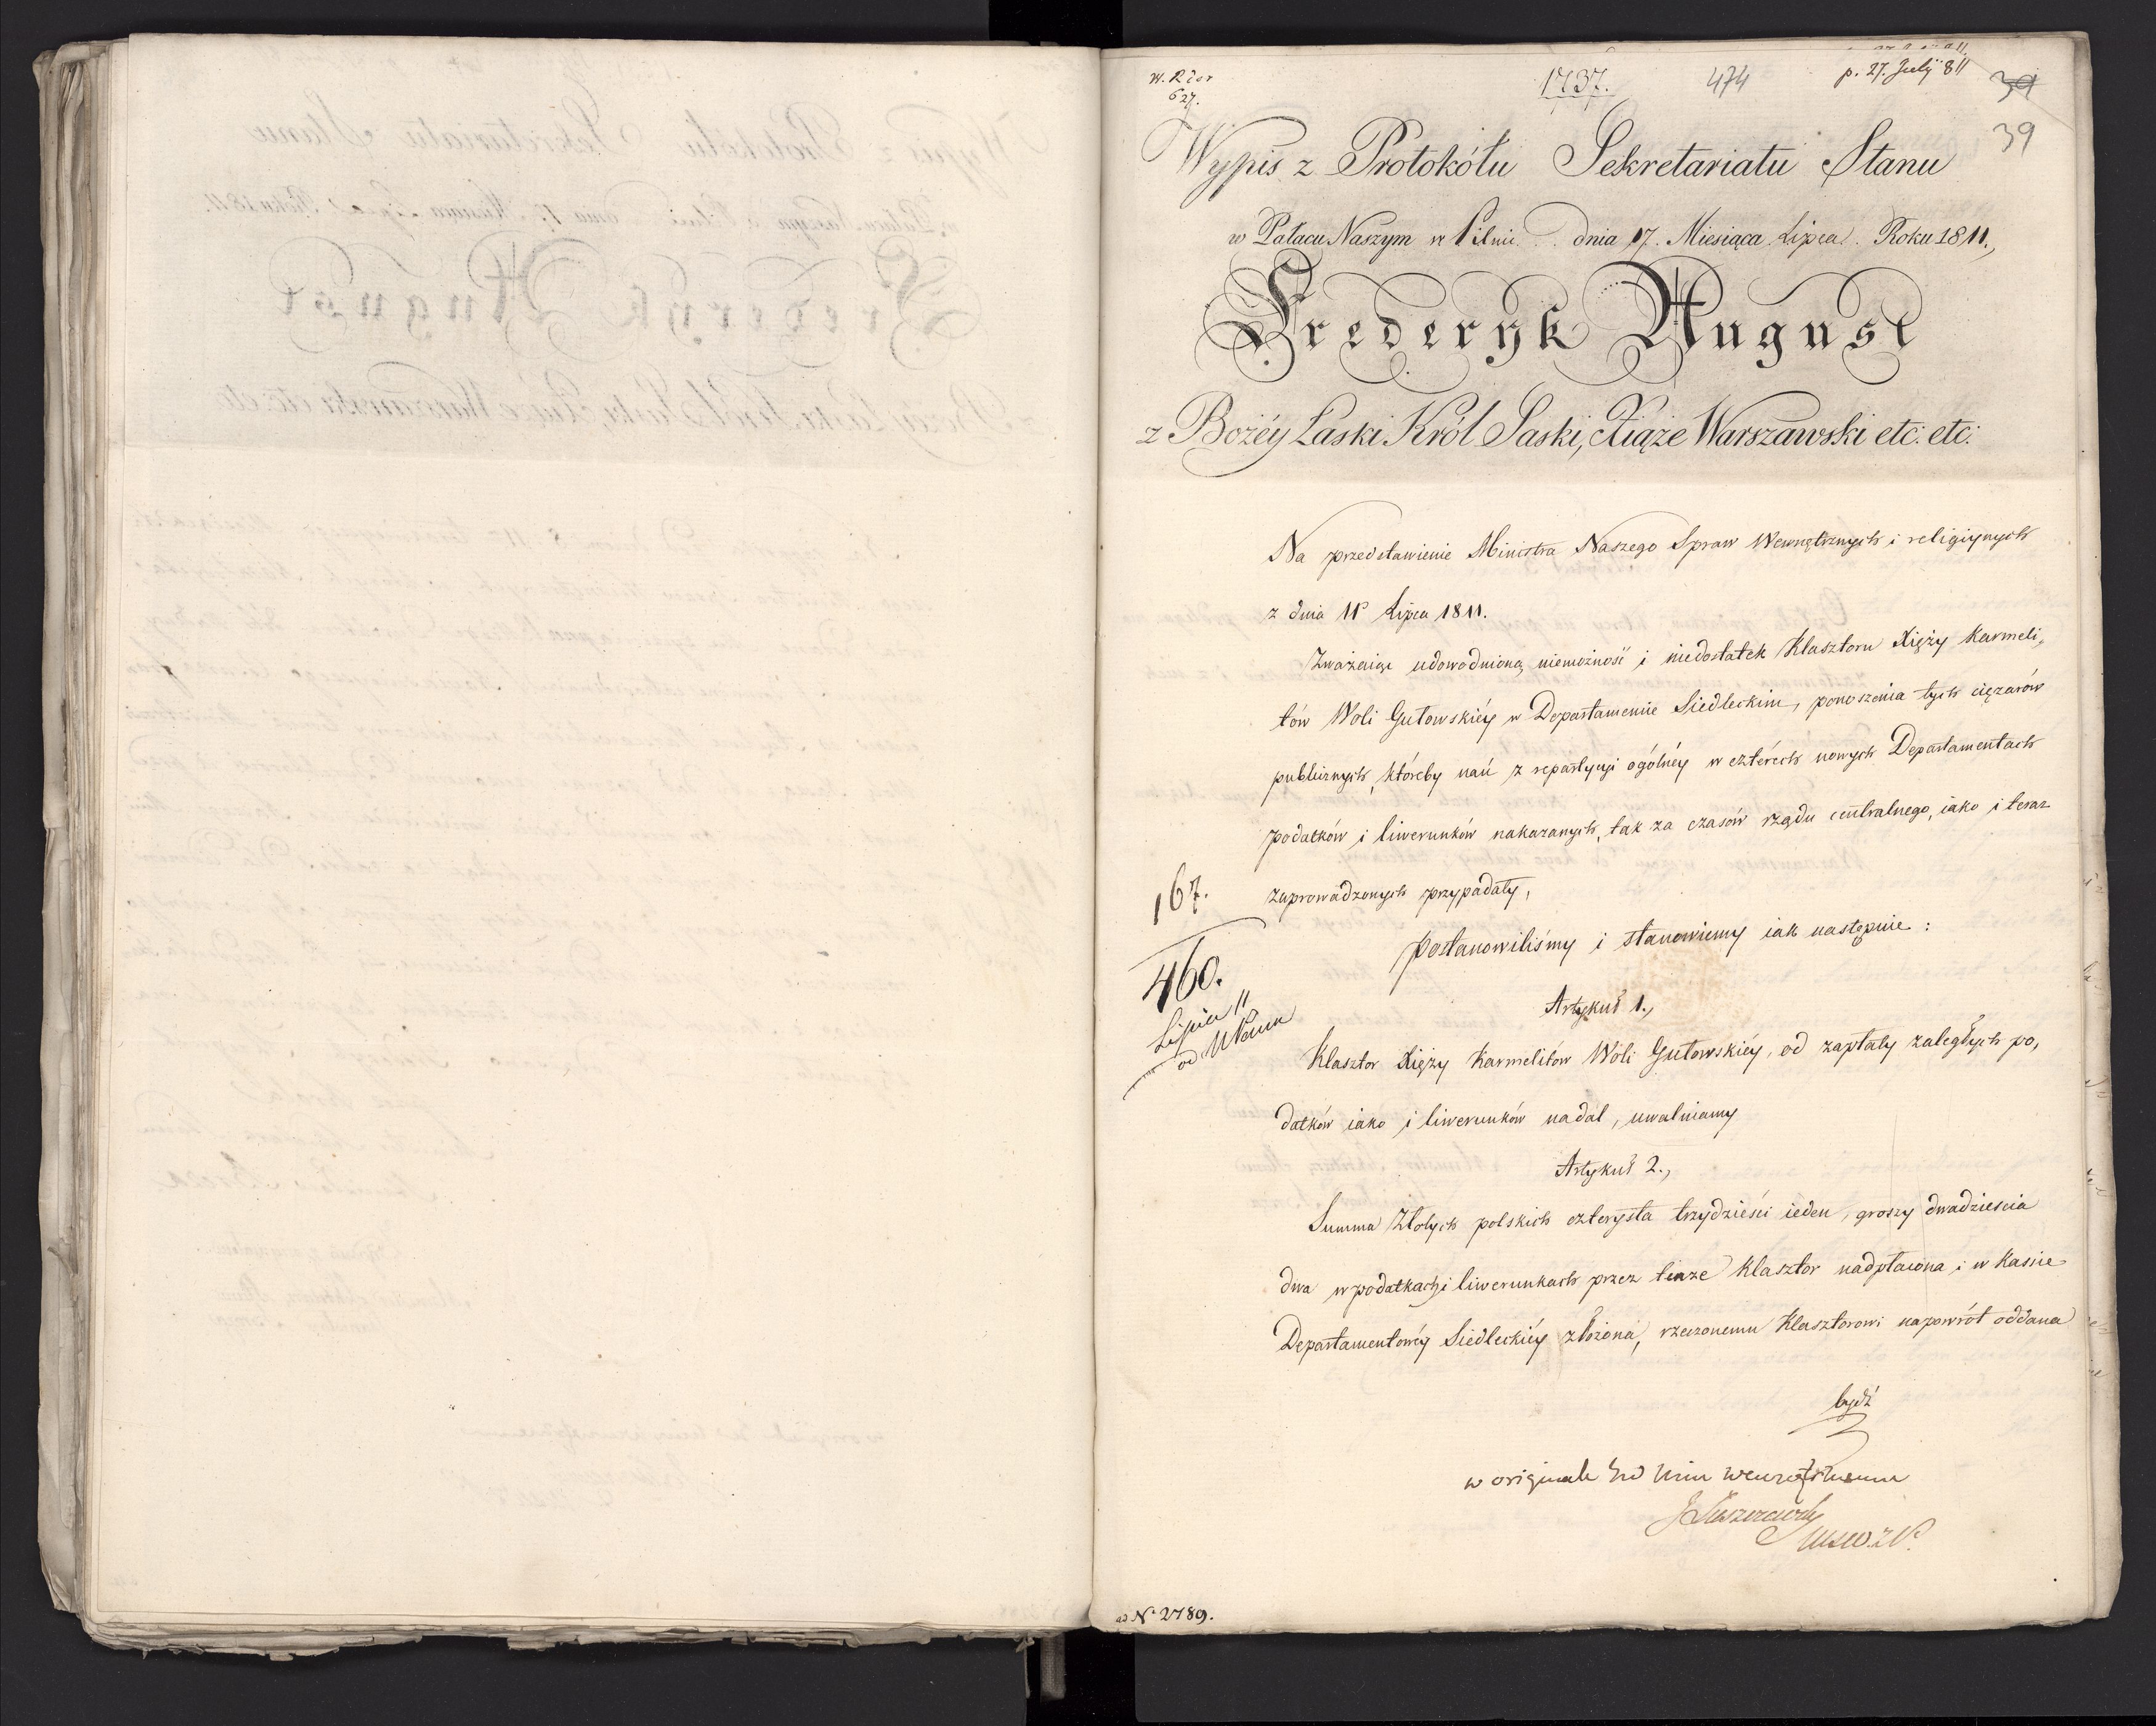 627.
1737.
474
p. 27. July 811
39
39
Wypis z Protokółu Sekretariatu Stanu
w Pałacu Naszym w Pilnic dnia 17. Miesiąca Lipca. Roku 1811.,
Frederyk August
z Bożéy Łaski Król Saski, Xiąże Warszawski etc: etc:
Na przedstawienie Ministra Naszego Spraw Wewnętrznych i religiynych
z dnia 11 Lipca 1811.
Zważaiąc udowodnioną niemożność i niedostatek Klasztoru Xięży Karmeli,
tów Woli Gutowskiéy w Departamencie Siedleckim, ponoszenia tych ciężarów
publicznych, któreby nań z repartycyi ogólnéy w czterech nowych Departamentach
podatków i liwerunków nakazanych, tak za czasów rządu centralnego, iako i teraz
zaprowadzonych przypadały,
postanowiliśmy i stanowiemy iak następuie:
167.
460.
Lipca 11
Artykuł 1.,
Klasztor Xięży Karmelitów Woli Gutowskiéy, od zapłaty zaległych po,
datków iako i liwerunków nadal, uwalniamy
Artykuł 2.,
Summa Złotych polskich czterysta trzydzieści ieden, groszy dwadzieścia
dwa w podatkach i liwerunkach przez tenże Klasztor nadpłacona i w Kassie
Departamentowéy Siedleckiéy złożona, rzeczonemu Klasztorowi napowrót oddana
bydź
w originale
ad N. 2789.